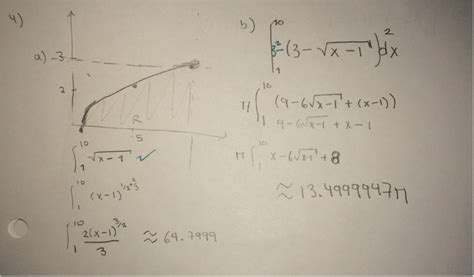 4)
a) 3
2
R
5
∫₁¹⁰ √x-1 ✓
∫₁¹⁰ (x-1)^1/2
∫₁¹⁰ 2(x-1)^3/2 / 3 ≈ 64.7999
b)
∫₁¹⁰ 3²-(3-√x-1)² dx
π ∫₁¹⁰ (9-6√x-1+(x-1))
9-6√x-1+x-1
π ∫₁¹⁰ x-6√x-1+8
≈ 13.4999947π